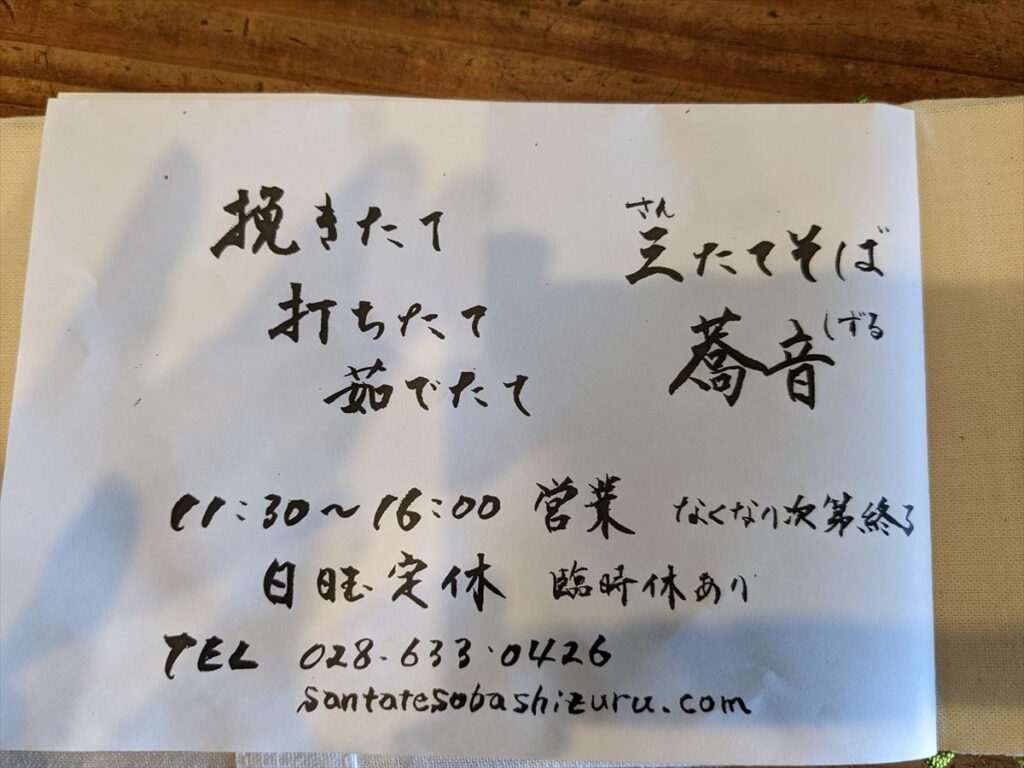 さん
三たてそば
蕎音 しずる
挽きたて
打ちたて
茹でたて
11:30〜16:00 営業 なくなり次第終了
日曜定休 臨時休あり
TEL 028-633-0426
santatesobashizuru.com